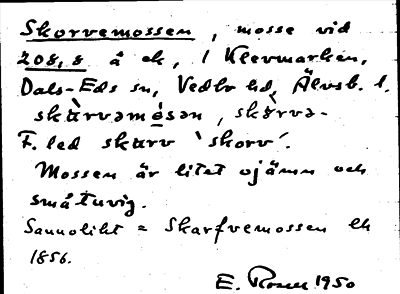 Skorvemossen, mosse vid
208,8 å ek, i Klevmarken,
Dals-Eds sn, Vedbo hd, Älvsb. l.
skàrvəmósən, skə̀rvə-
F. led skarv 'skorv'.
Mossen är litet ojämn och
småtuvig.
Sannolikt = Skarfvemossen lk
1856.
E. Rosell 1950